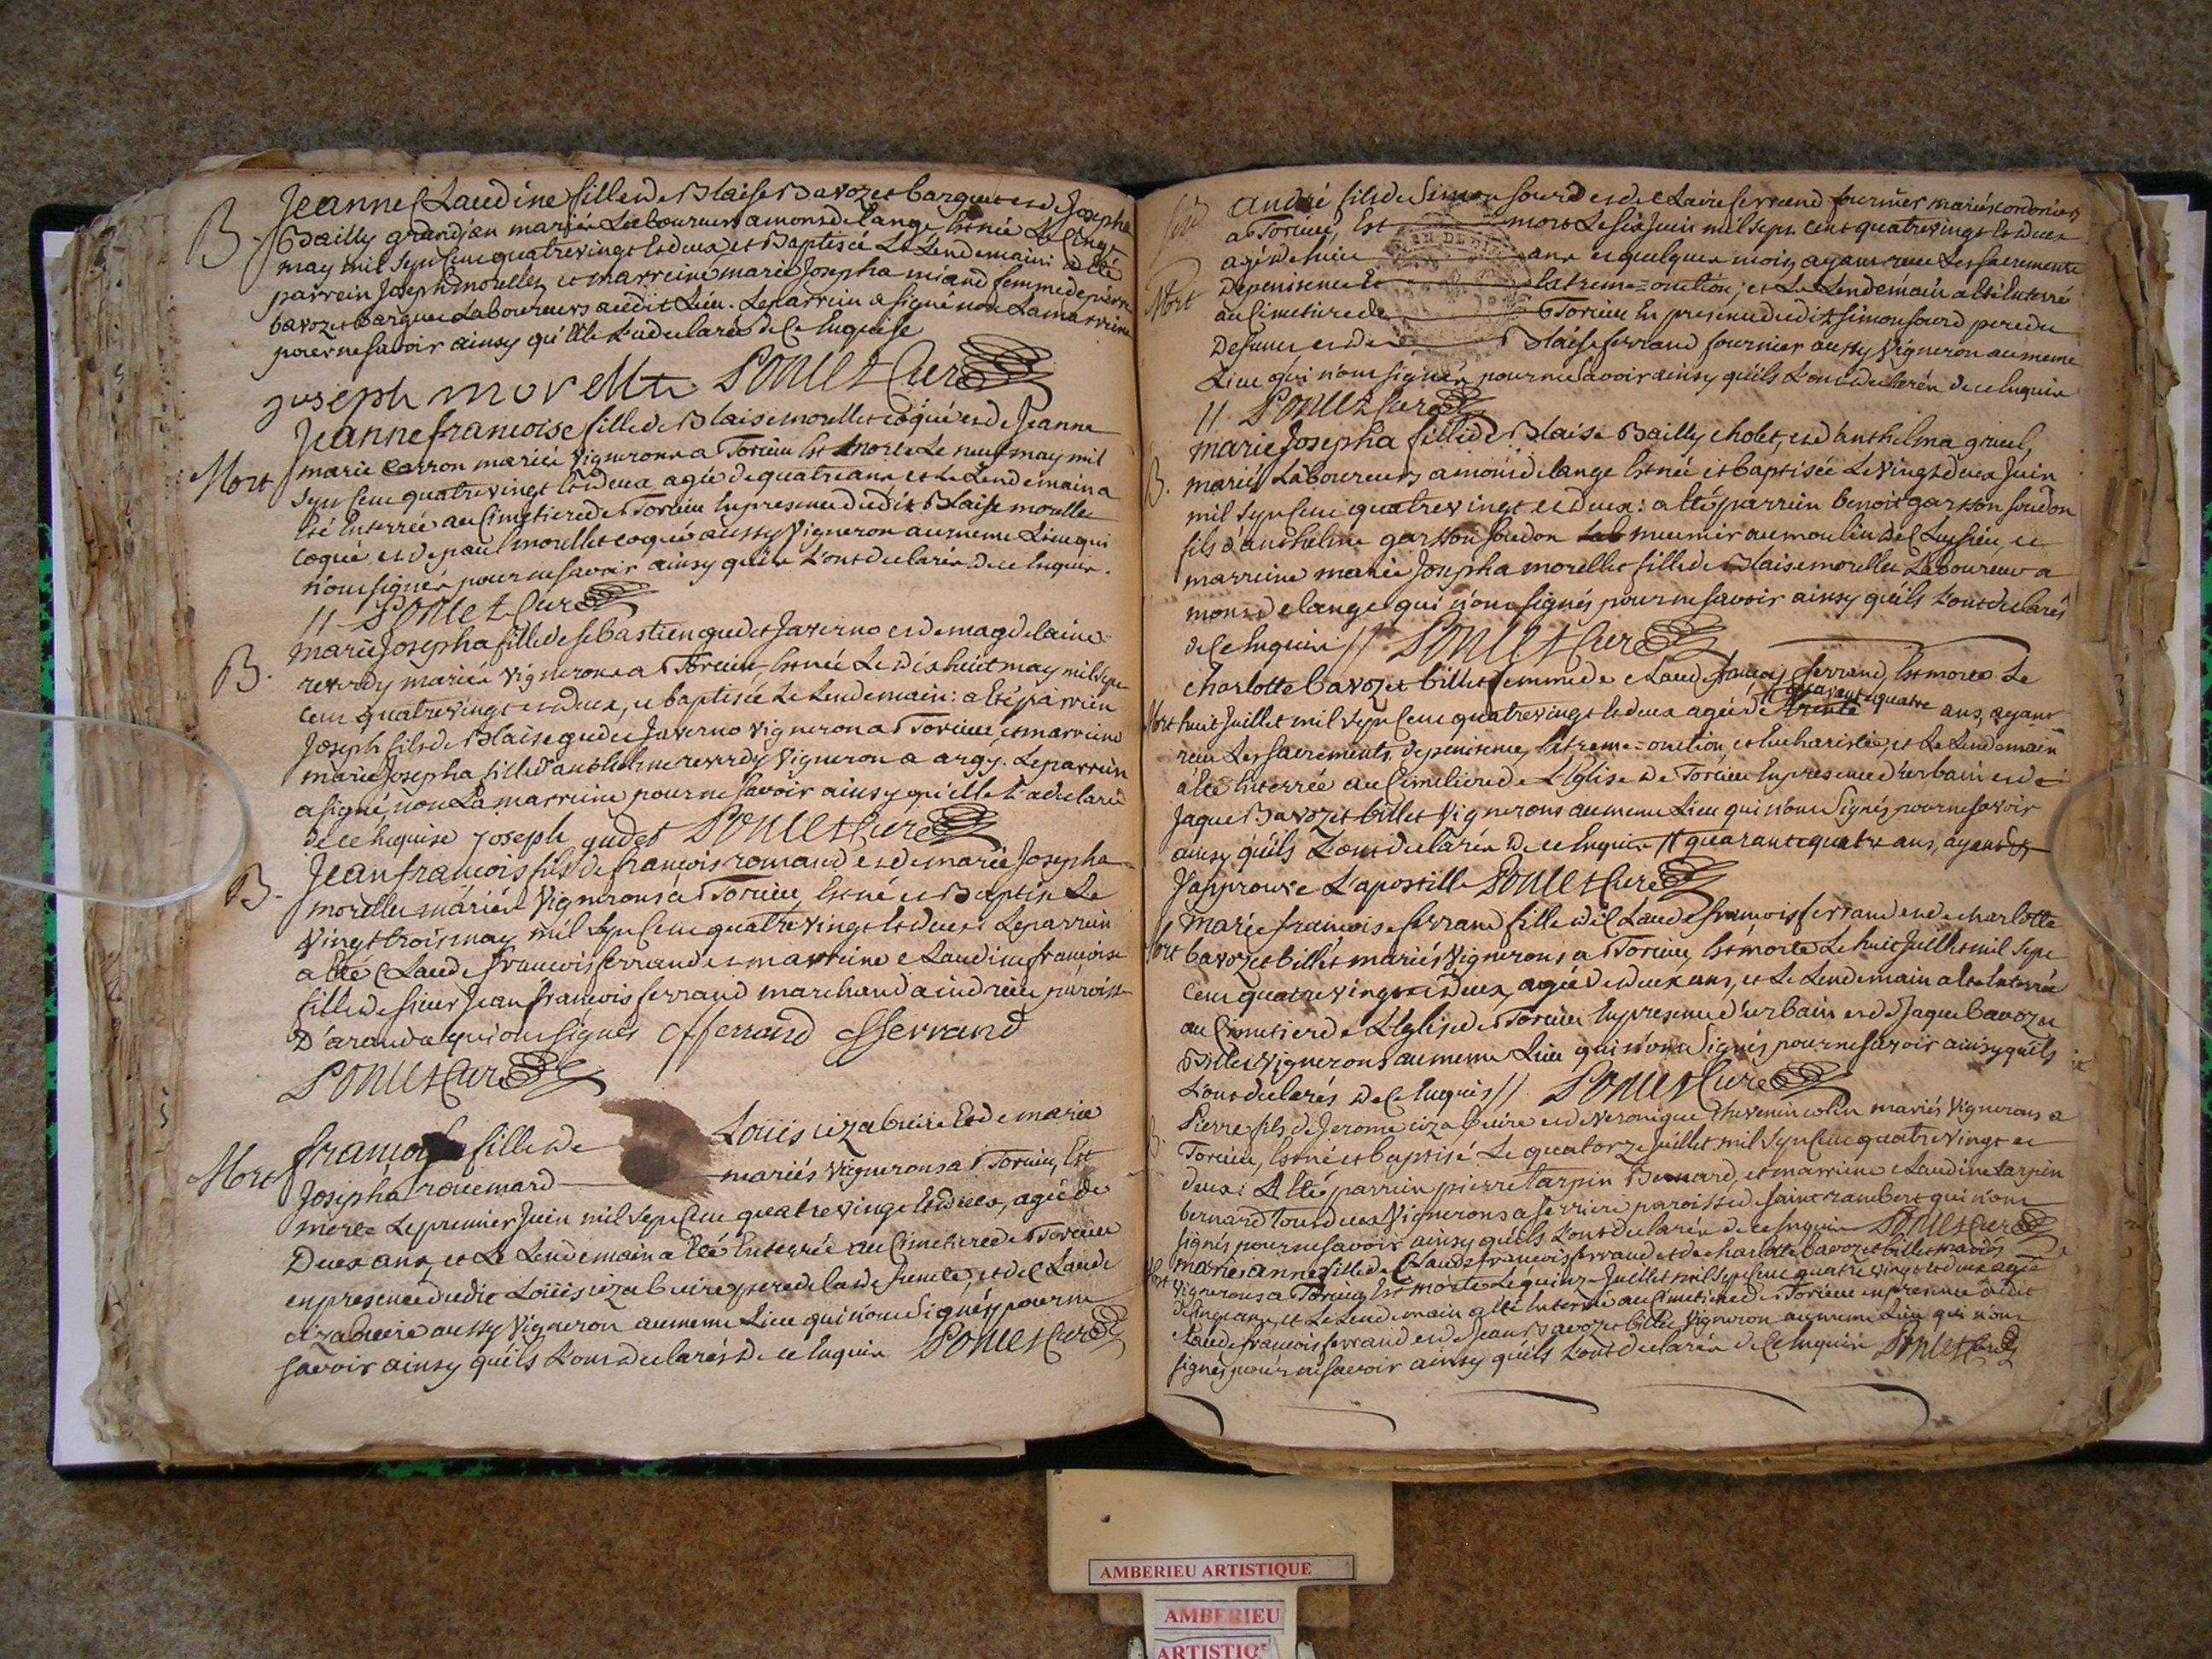 B. Jeanne Claudine fille de Blaise Bavozet barguet et de Josepha
Bailly grandjan mariés Laboureurs a mont de lange Est née Le cinq
may mil sept Cent quatrevingt Et deux et Baptisée Le Lendemain: a Eté
parrein Joseph morellet et marreine marie Josepha miand femme de pierre
bavozet barguet Laboureurs audit Lieu. Le parrein a signé non La marreine
pour ne savoir ainsy qu'elle L'a declaré de Ce Enquise
joseph morellet Ponset Curé
Jeanne francoise fille de Blaise morellet coqué et de Jeanne
Mort marie Carron mariés Vignerons a Torcieu Est Morte Le neuf may mil
sept Cent quatrevingt Et deux agée de quatre ans et Le Lendemain a
Eté Enterrée au Cimetiere de Torcieu En presence dudit Blaise morellet
coqué et de paul morellet coqué aussy Vigneron au meme Lieu qui
n'ont signés pour ne savoir ainsy qu'ils L'ont declarés de ce Enquis.
// Ponset Curé
B. marie Josepha fille de sebastien gudet Javerno et de magdelaine
reverdy mariés Vignerons a Torcieu Est née Le dix huit may mil sept
Cent quatrevingt et deux, et baptisée Le Lendemain: a Eté parrein
Joseph fils de Blaise gudet Javerno Vigneron a Torcieu, et marreine
marie Josepha fille d'anthelme reverdy Vigneron a argy. Le parrein
a signé, non La marreine pour ne savoir ainsy qu'elle L'a declaré
de ce Enquise joseph gudet Ponset Curé
B. Jean francois fils de francois romand et de marie Josepha
morellet mariés Vignerons a Torcieu, Est né et Baptisé Le
Vingt trois may mil sept Cent quatrevingt Et deux: Le parrein
a Eté Claude francois ferrand et marreine Claudine francoise
fille de sieur Jean francois ferrand marchand a indrieu paroisse
D'aranda qui ont signés Cf ferrand Cfferrand
Ponset Curé
francoise fille de Louis cizabuire Et de marie
Mort Josepha rouemard mariés Vignerons a Torcieu, Est
morte Le premier Juin mil sept Cent quatrevingt Et deux, agée de
Deux ans, et Le Lendemain a Eté Enterrée au Cimetiere de Torcieu
en presence dudit Louis cizabuire pere de la defuncte, et de Claude
cizabuire aussy Vigneron au meme Lieu qui n'ont signés pour ne
savoir ainsy qu'ils L'ont declarés de ce Enquis Ponset Curé
André fils de Simon sourd et de Claire ferrand fournier mariés
a Torcieu, Est mort Le six Juin mil sept Cent quatrevingt Et deux
agé de huit ans et quelques mois, ayant reçu Les sacrements
Mort De penitence Et Extreme-onction; et Le Lendemain a Eté Enterré
au Cimetiere de Torcieu En presence dudit simon sourd pere du
Defunct et de Blaise ferrand fournier aussy Vigneron au meme
Lieu qui n'ont signés pour ne savoir ainsy qu'ils L'ont declarés de ce Enquis
// Ponset Curé
marie Josepha fille de Blaise Bailly cholet, et d'anthelma gruel,
B. mariés Laboureurs a mont de lange Est née et baptisée Le vingt deux Juin
mil sept Cent quatrevingt et deux: a Eté parrein benoit garsson soudon
fils d'anthelme garsson soudon meunier au moulin de Cleysieu, et
marreine marie Josepha morellet fille de Blaise morellet Laboureur a
mont de lange qui n'ont signés pour ne savoir ainsy qu'ils L'ont declarés
de Ce Enquis // Ponset Curé
Charlotte bavozet billet femme de Claude françois ferrand, Est morte Le
quarante quatre
Mort huit Juillet mil sept Cent quatrevingt Et deux agée de trente ans, ayant
reçu Les sacrements de penitence, Extreme-onction, et Eucharistie, et Le Lendemain
a Eté Enterrée au Cimetiere de L'Eglise de Torcieu En presence d'urbain et de
Jaque Bavozet billet Vignerons au meme Lieu qui n'ont signés pour ne savoir
ainsy qu'ils L'ont declarés de ce Enquis # quarante quatre ans, ayant
J'approuve L'apostille Ponset Curé
marie francoise ferrand fille de Claude francois ferrand et de charlotte
Mort bavozet billet mariés Vignerons a Torcieu, Est morte Le huit Juillet mil sept
Cent quatrevingt et deux, agée de deux ans, et Le Lendemain a Eté Enterrée
au Cimetiere de L'Eglise de Torcieu En presence d'urbain et de Jaque bavozet
Billet Vignerons au meme Lieu qui n'ont signés pour ne savoir ainsy qu'ils
L'ont declarés de Ce Enquis // Ponset Curé
B. Pierre fils de Jerome cizabuire et de veronique thevenin colin mariés Vignerons a
Torcieu, Est né et baptisé Le quatorze Juillet mil sept Cent quatrevingt et
deux: A Eté parrein pierre tarpin Bernard, et marreine Claudine tarpin
bernard tous deux Vignerons a serriere paroisse de saint rambert qui n'ont
signés pour ne savoir ainsy qu'ils L'ont declarés de ce Enquis Ponset Curé
marie anne fille de Claude francois ferrand et de charlotte bavozet billet mariés
Mort Vignerons a Torcieu Est morte Le quinze Juillet mil sept Cent quatrevingt et deux agée
de cinq ans, et Le Lendemain a Eté Enterrée au Cimetiere de Torcieu en presence dudit
Claude francois ferrand et de Jean Bavozet billet Vigneron au meme Lieu qui n'ont
signés pour ne savoir ainsy qu'ils L'ont declarés de Ce Enquis Ponset Curé
AMBERIEU ARTISTIQUE
AMBERIEU
ARTISTIQ